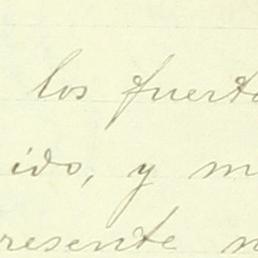 los fuert
ido, y m
resente n